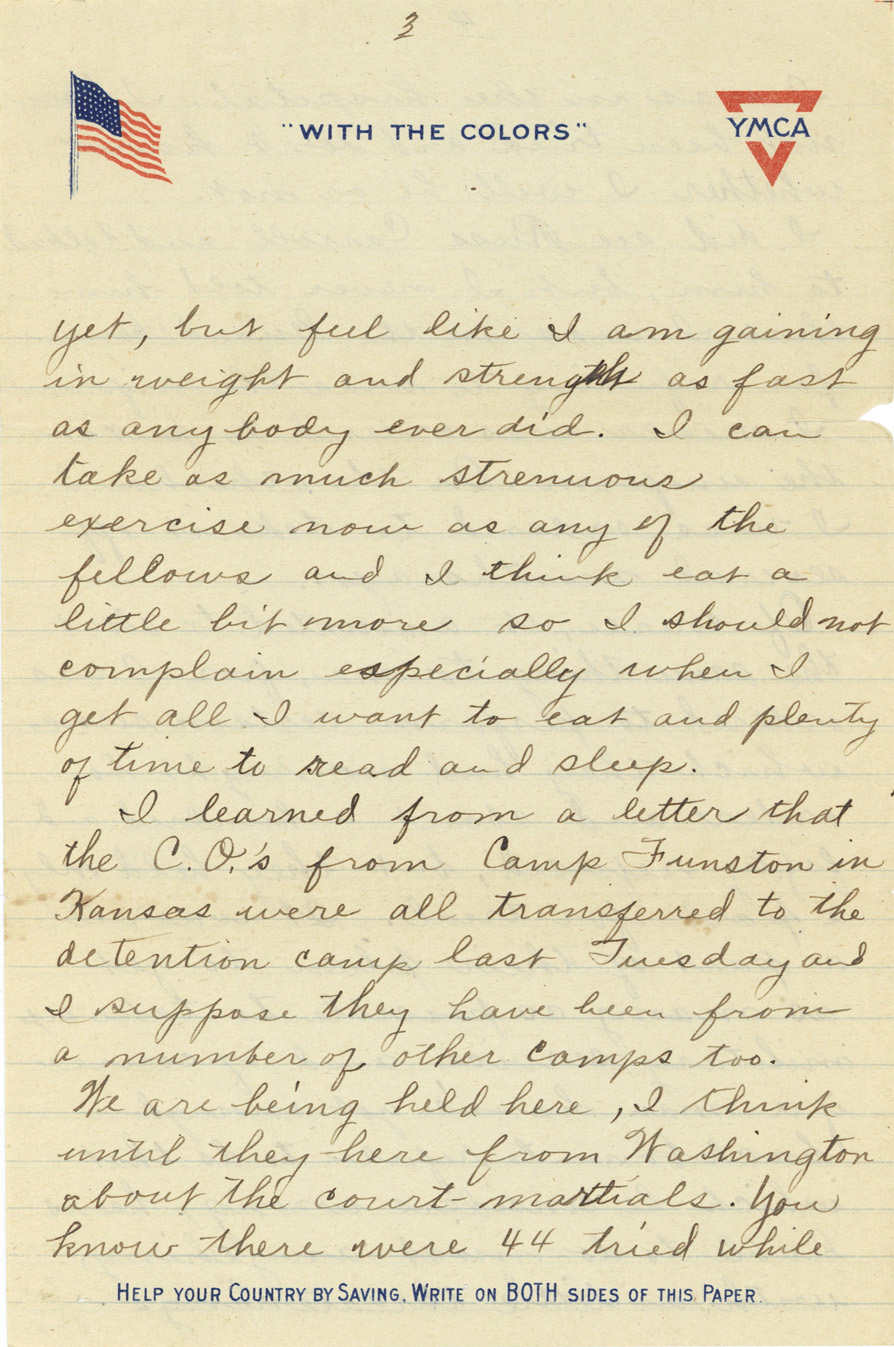 3
"WITH THE COLORS"
YMCA
yet, but feel like I am gaining
in weight and strength as fast
as anybody ever did. I can
take as much strenuous
exercise now as any of the
fellows and I think eat a
little bit more so I should not
complain especially when I
get all I want to eat and plenty
of time to read and sleep.
I learned from a letter that
the C.O.'s from Camp Funston in
Kansas were all transferred to the
detention camp last Tuesday and
I suppose they have been from
a number of other camps too.
We are being held here, I think
until they here from Washington
about the court-martials. You
know there were 44 tried while
HELP YOUR COUNTRY BY SAVING, WRITE ON BOTH SIDES OF THIS PAPER.